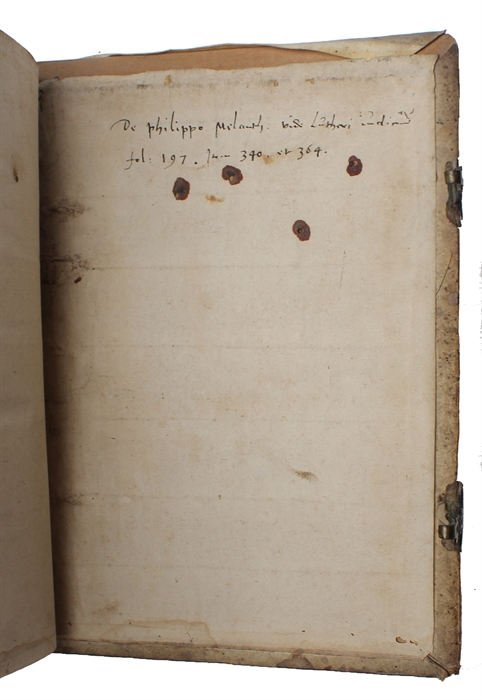 De Philippo Melanth. vide Lutheri iudiciū
fol: 197. Item 340. et 364.